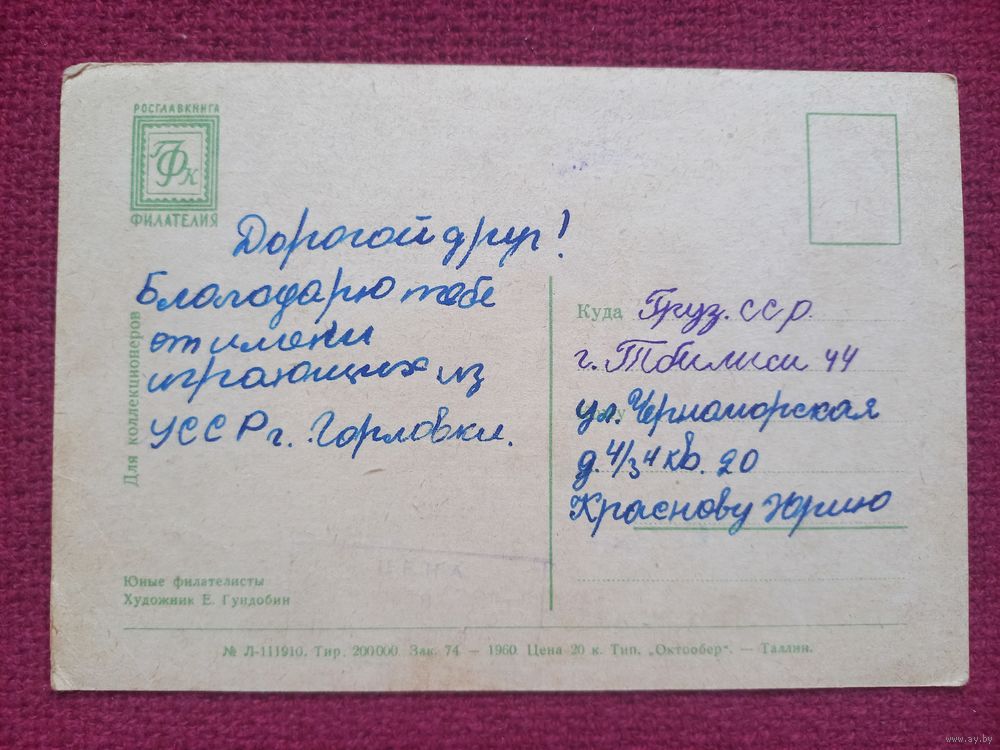 РОСГЛАВКНИГА
ГФК
ФИЛАТЕЛИЯ
Для коллекционеров
Дорогой друг!
Благодарю тебе
от имени
играющих из
УССР г. Горловки.
Юные филателисты
Художник Е. Гундобин
Куда Груз. ССР
г. Тбилиси 44
ул. Черноморская
д. 4/3 4 кв. 20
Краснову Юрию
ЦЕНА
№ Л-111910. Тир. 200000. Зак. 74 — 1960. Цена 20 к. Тип. „Октообер“. — Таллин.
www.ay.by